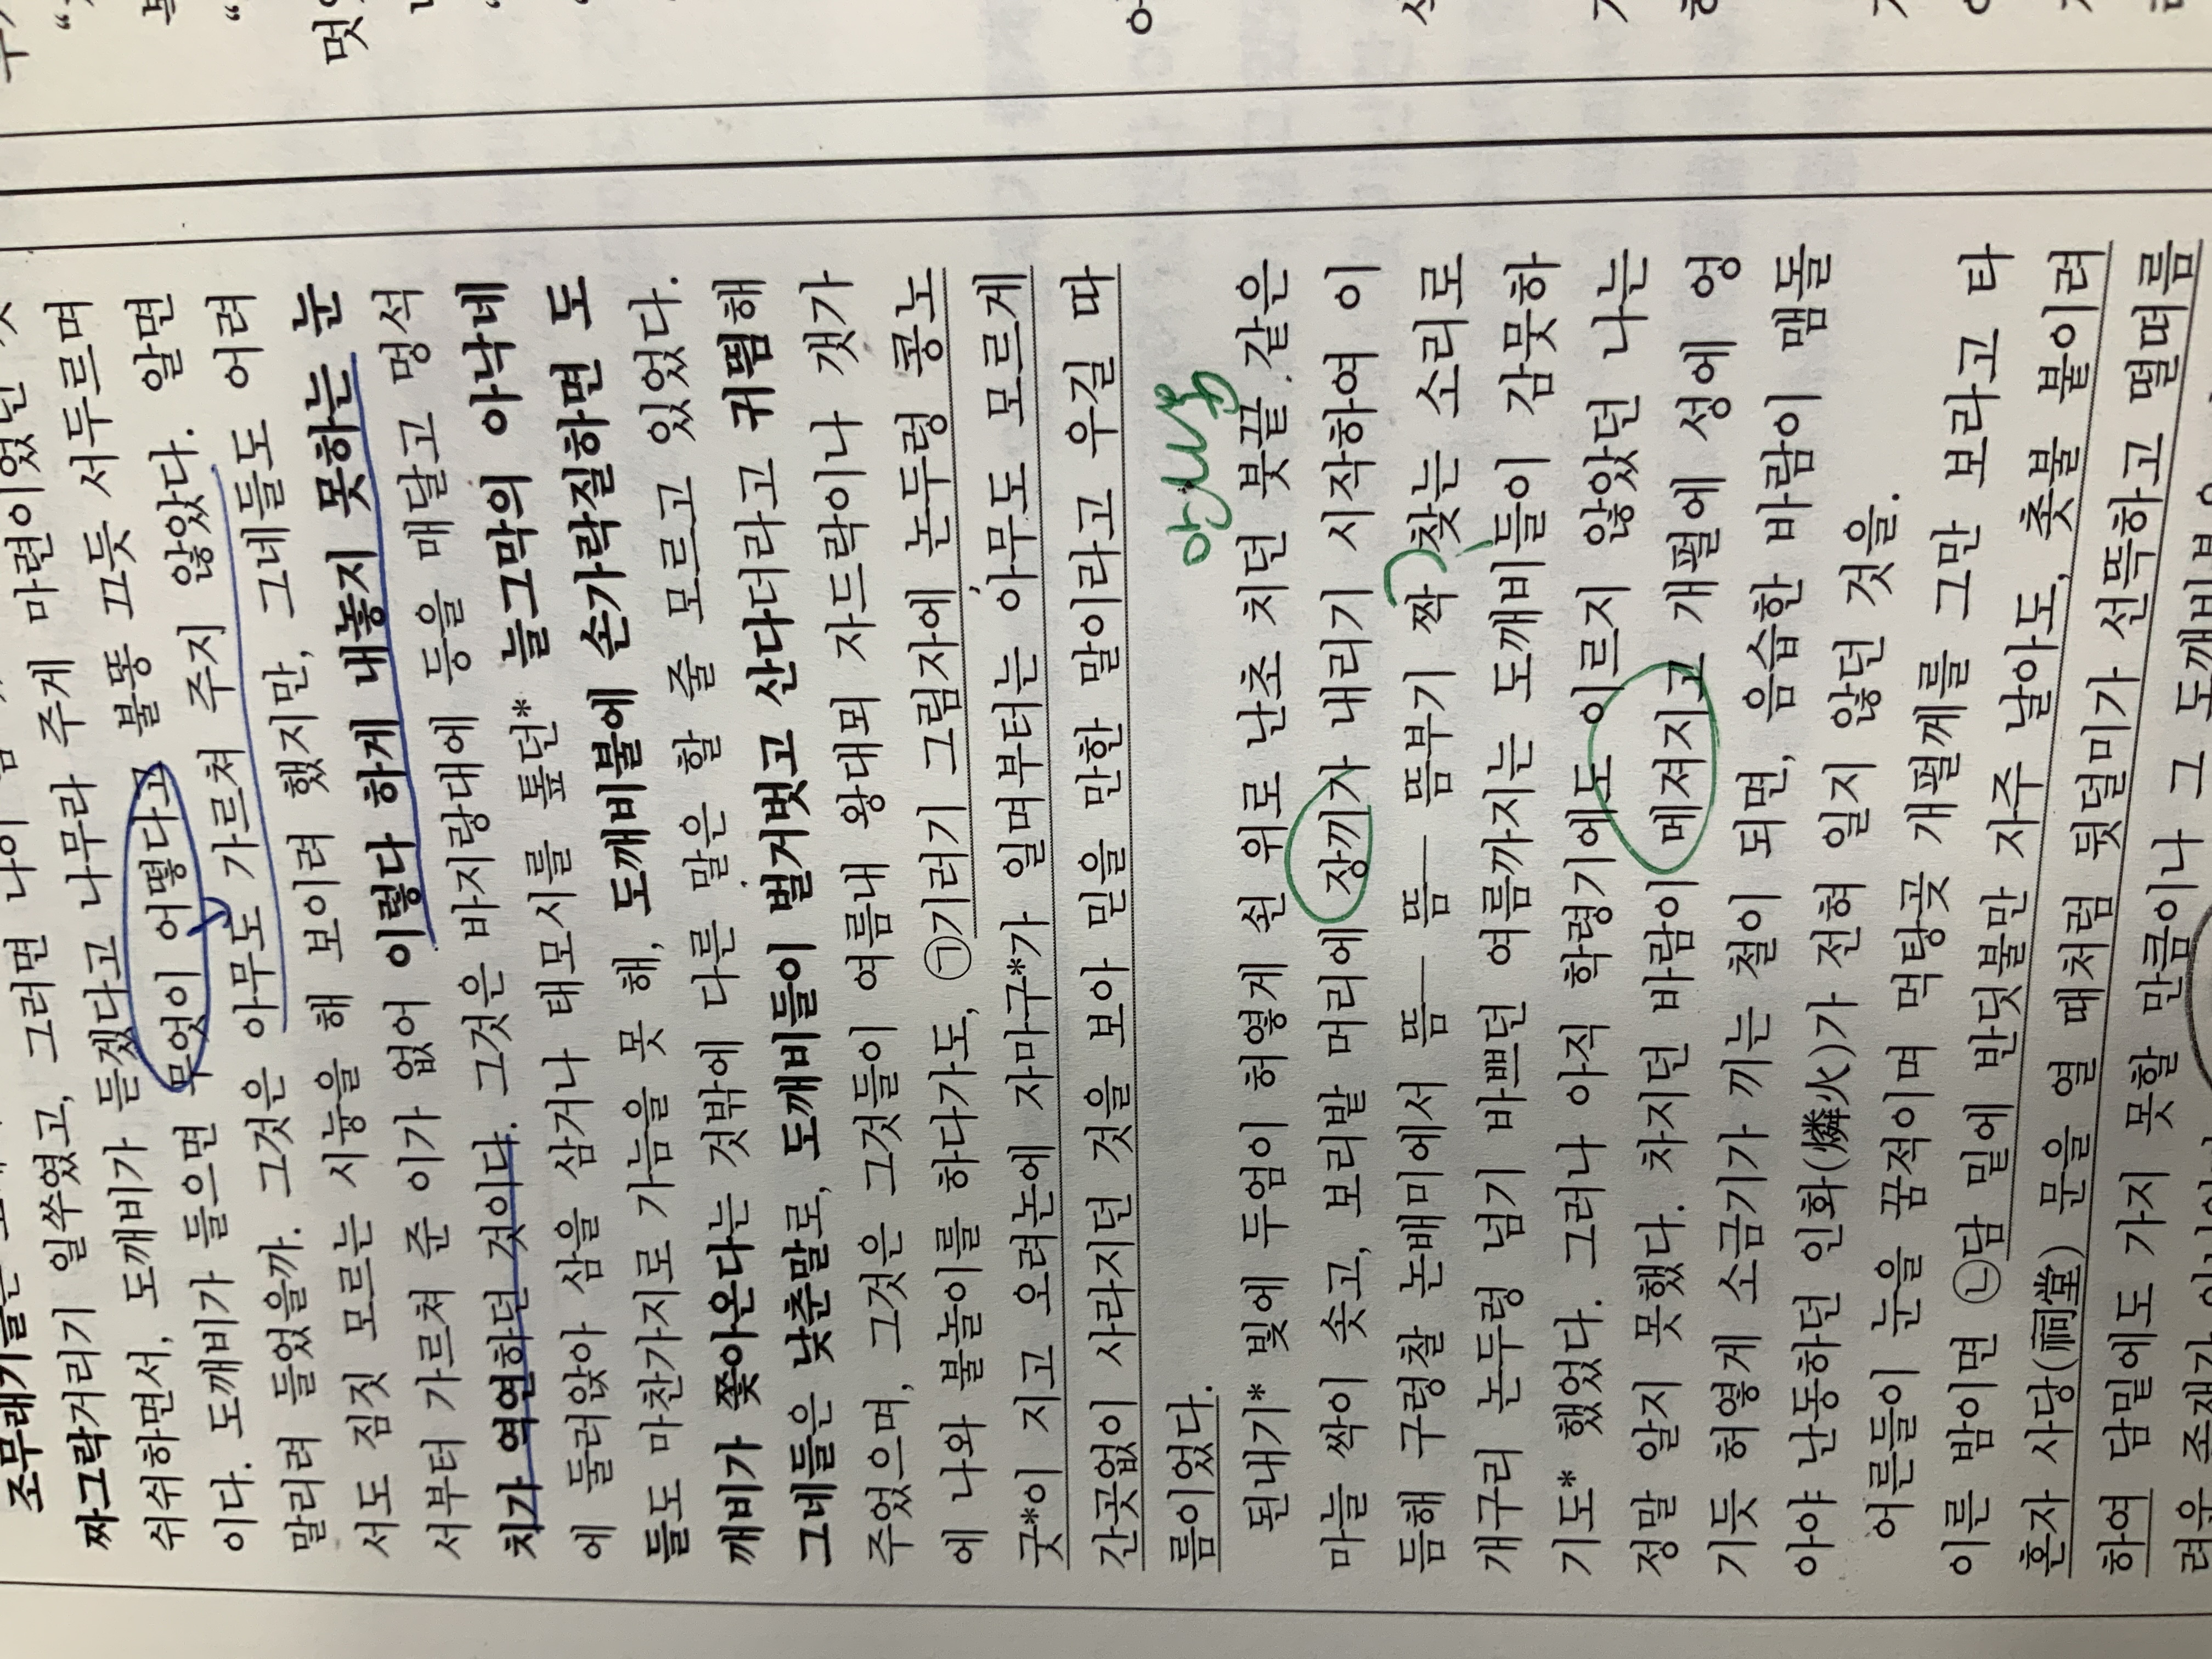 조무래기들은
짜그락거리기 일쑤였고, 그러면 나이
쉬쉬하면서, 도깨비가 듣겠다고 나무라 주게 마련이었던 것
이다. 도깨비가 들으면 무엇이 어떻다고 불똥 끄듯 서두르며
말리려 들었을까. 그것은 아무도 가르쳐 주지 않았다. 알면
서도 짐짓 모르는 시늉을 해 보이려 했지만, 그네들도 어려
서부터 가르쳐 준 이가 없어 이렇다 하게 내놓지 못하는 눈
치가 역연하던 것이다. 그것은 바지랑대에 등을 매달고 멍석
에 둘러앉아 삼을 삼거나 태모시를 톺던* 늘그막의 아낙네
들도 마찬가지로 가늠을 못 해, 도깨비불에 손가락질하면 도
깨비가 쫓아온다는 것밖에 다른 말은 할 줄 모르고 있었다.
그네들은 낮춘말로, 도깨비들이 벌거벗고 산다더라고 귀띔해
주었으며, 그것은 그것들이 여름내 왕대뫼 자드락이나 갯가
에 나와 불놀이를 하다가도, ㉠기러기 그림자에 논두렁 콩노
굿*이 지고 오려논에 자마구*가 일며부터는 아무도 모르게
간곳없이 사라지던 것을 보아 믿을 만한 말이라고 우길 따
름이었다.
안내놓
된내기* 빛에 두엄이 허옇게 쇤 위로 난초 치던 붓끝 같은
마늘 싹이 솟고, 보리밭 머리에 장끼가 내리기 시작하여 이
듬해 구렁찰 논배미에서 뜸― 뜸― 뜸부기 짝 찾는 소리로
개구리 논두렁 넘기 바쁘던 여름까지는 도깨비들이 감못하
기도* 했었다. 그러나 아직 학령기에도 이르지 않았던 나는
정말 알지 못했다. 차지던 바람이 메져지고 개펄에 성에 엉
기듯 허옇게 소금기가 끼는 철이 되면, 음습한 바람이 맴돌
아야 난동하던 인화(燐火)가 전혀 일지 않던 것을.
어른들이 눈을 꿈적이며 먹탕곶 개펄께를 그만 보라고 타
이른 밤이면 ㉡담 밑에 반딧불만 자주 날아도, 촛불 붙이러
혼자 사당(祠堂) 문을 열 때처럼 뒷덜미가 선뜩하고 떨떠름
하여 담밑에도 가지 못할 만큼이나 그 도깨비불은